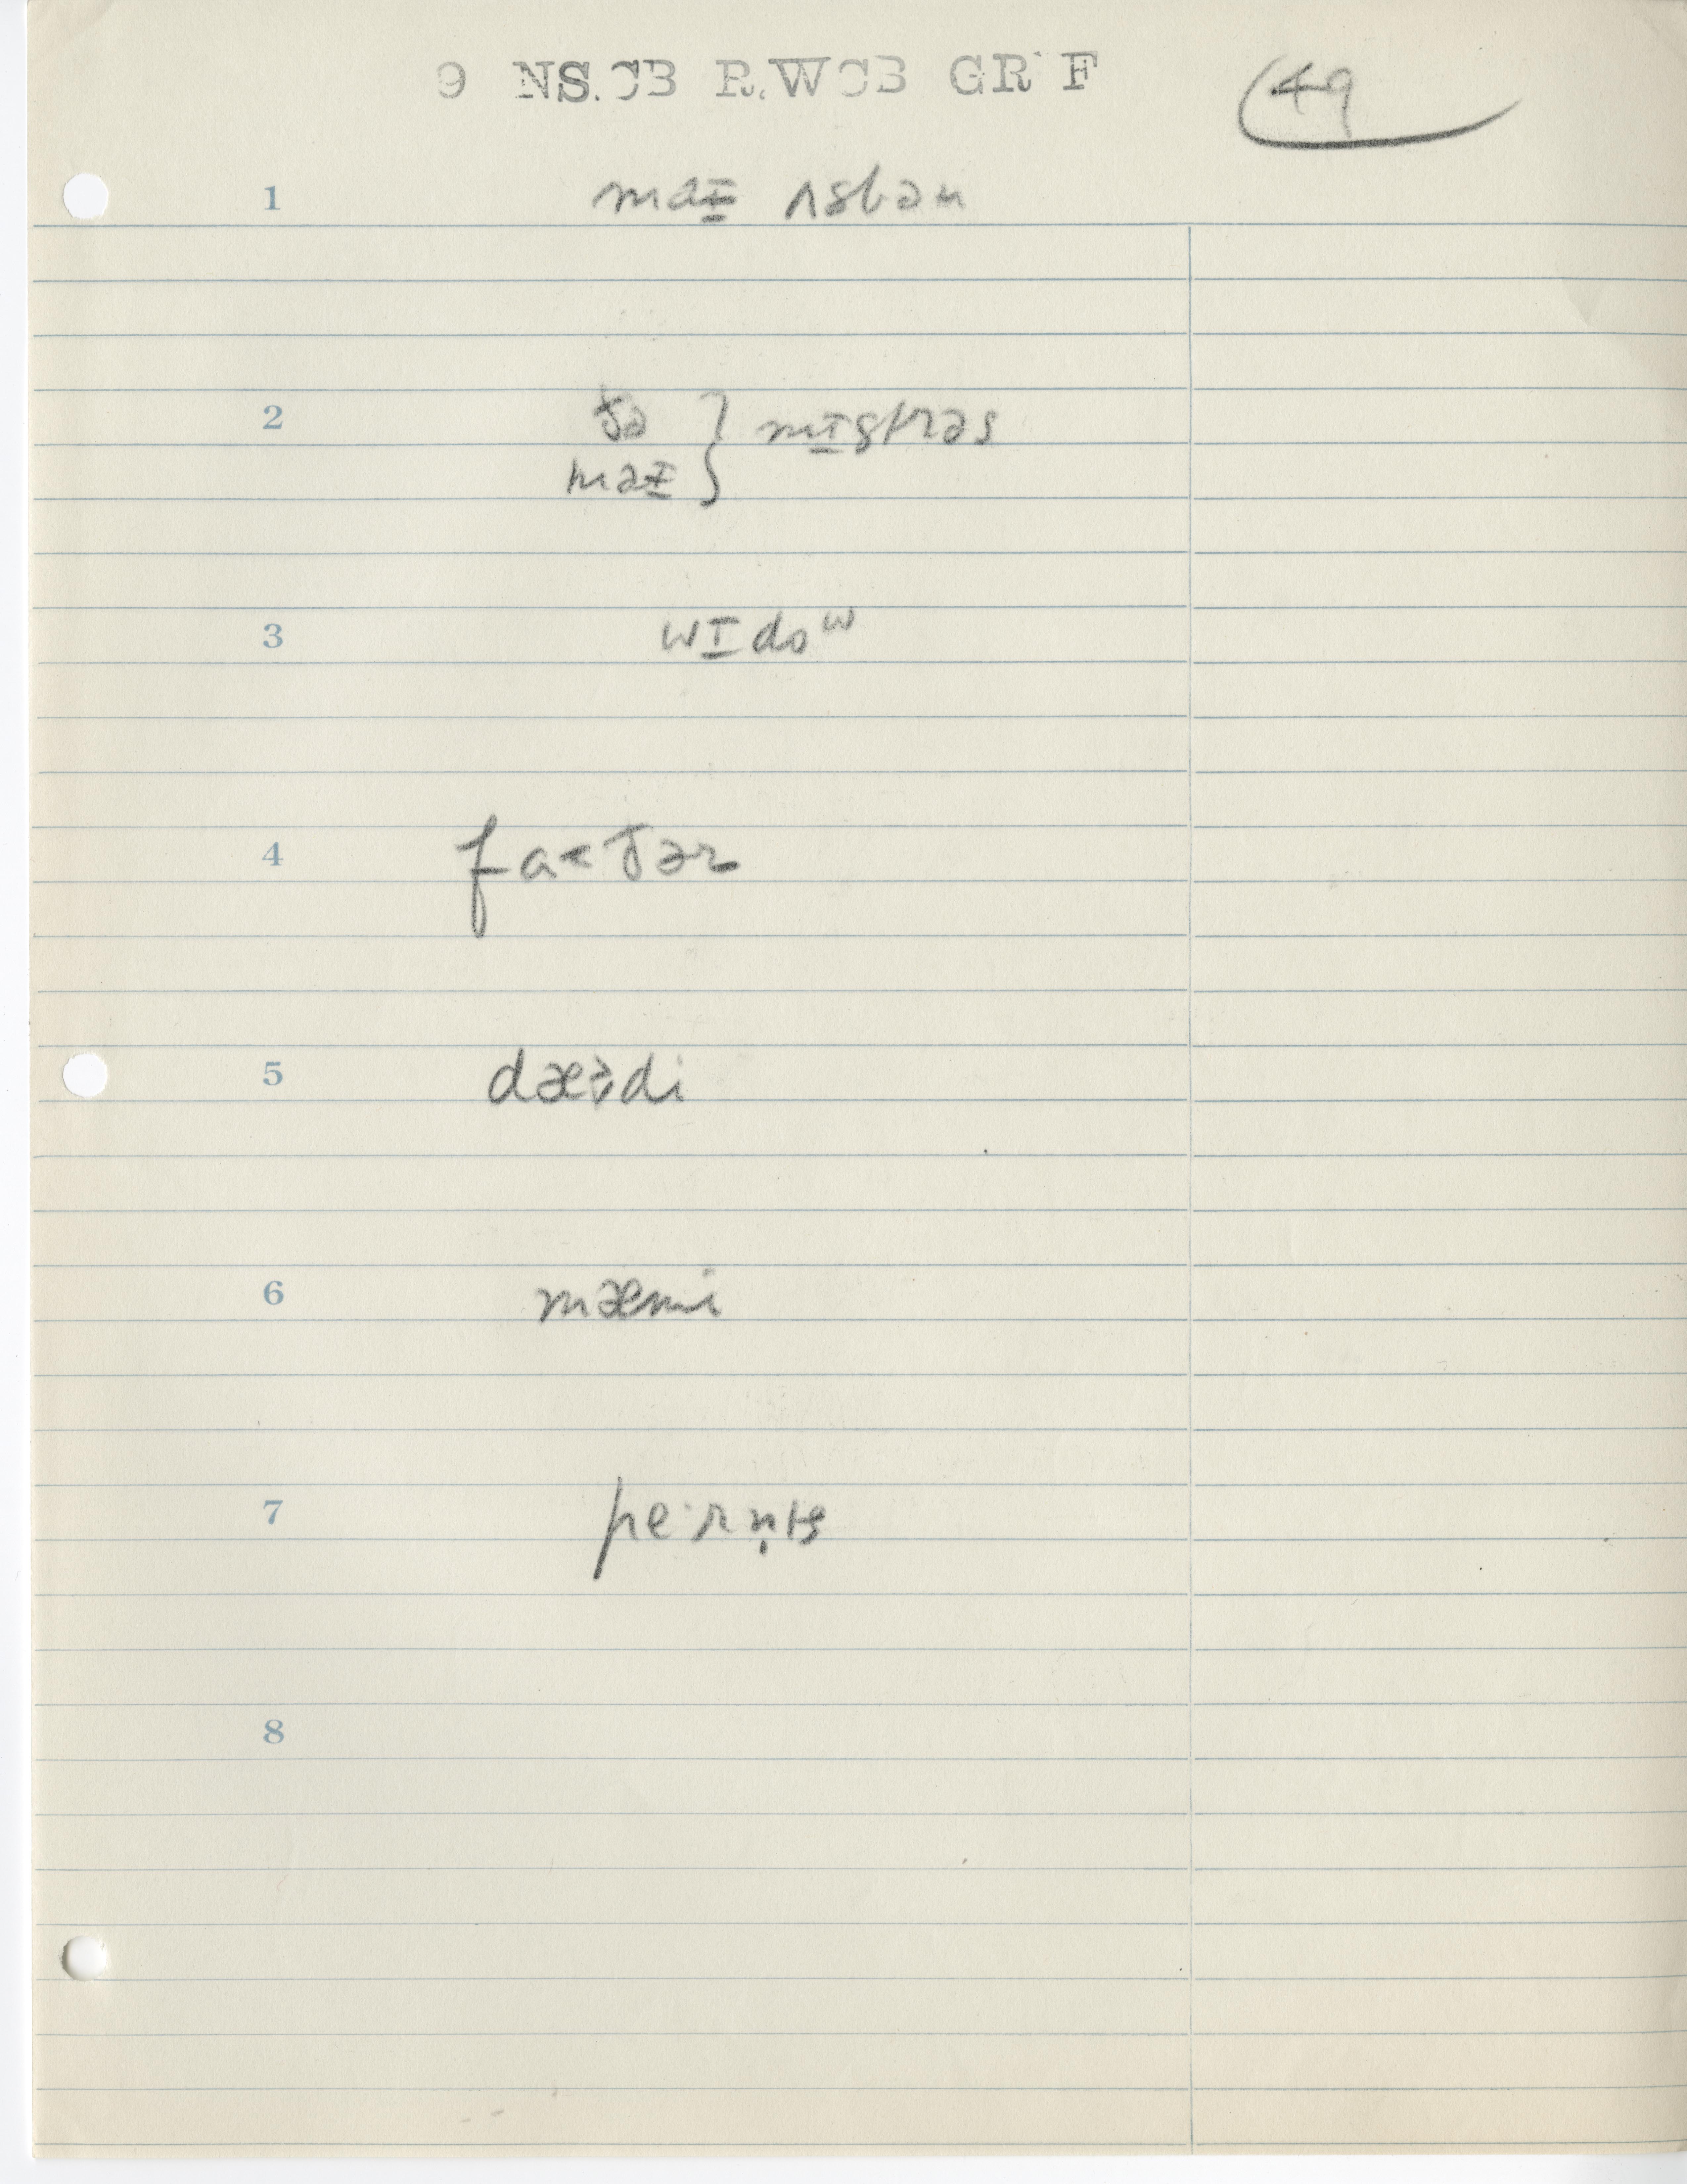 9 NS.CB R.WCB GR F 49
1 maɪ ʌsbən
2 ðə } mɪstrəs
maɪ
3 wɪdoʷ
4 fa˂ðər
5 dæ˃di
6 mæmi
7 pe·rn̩ts
8